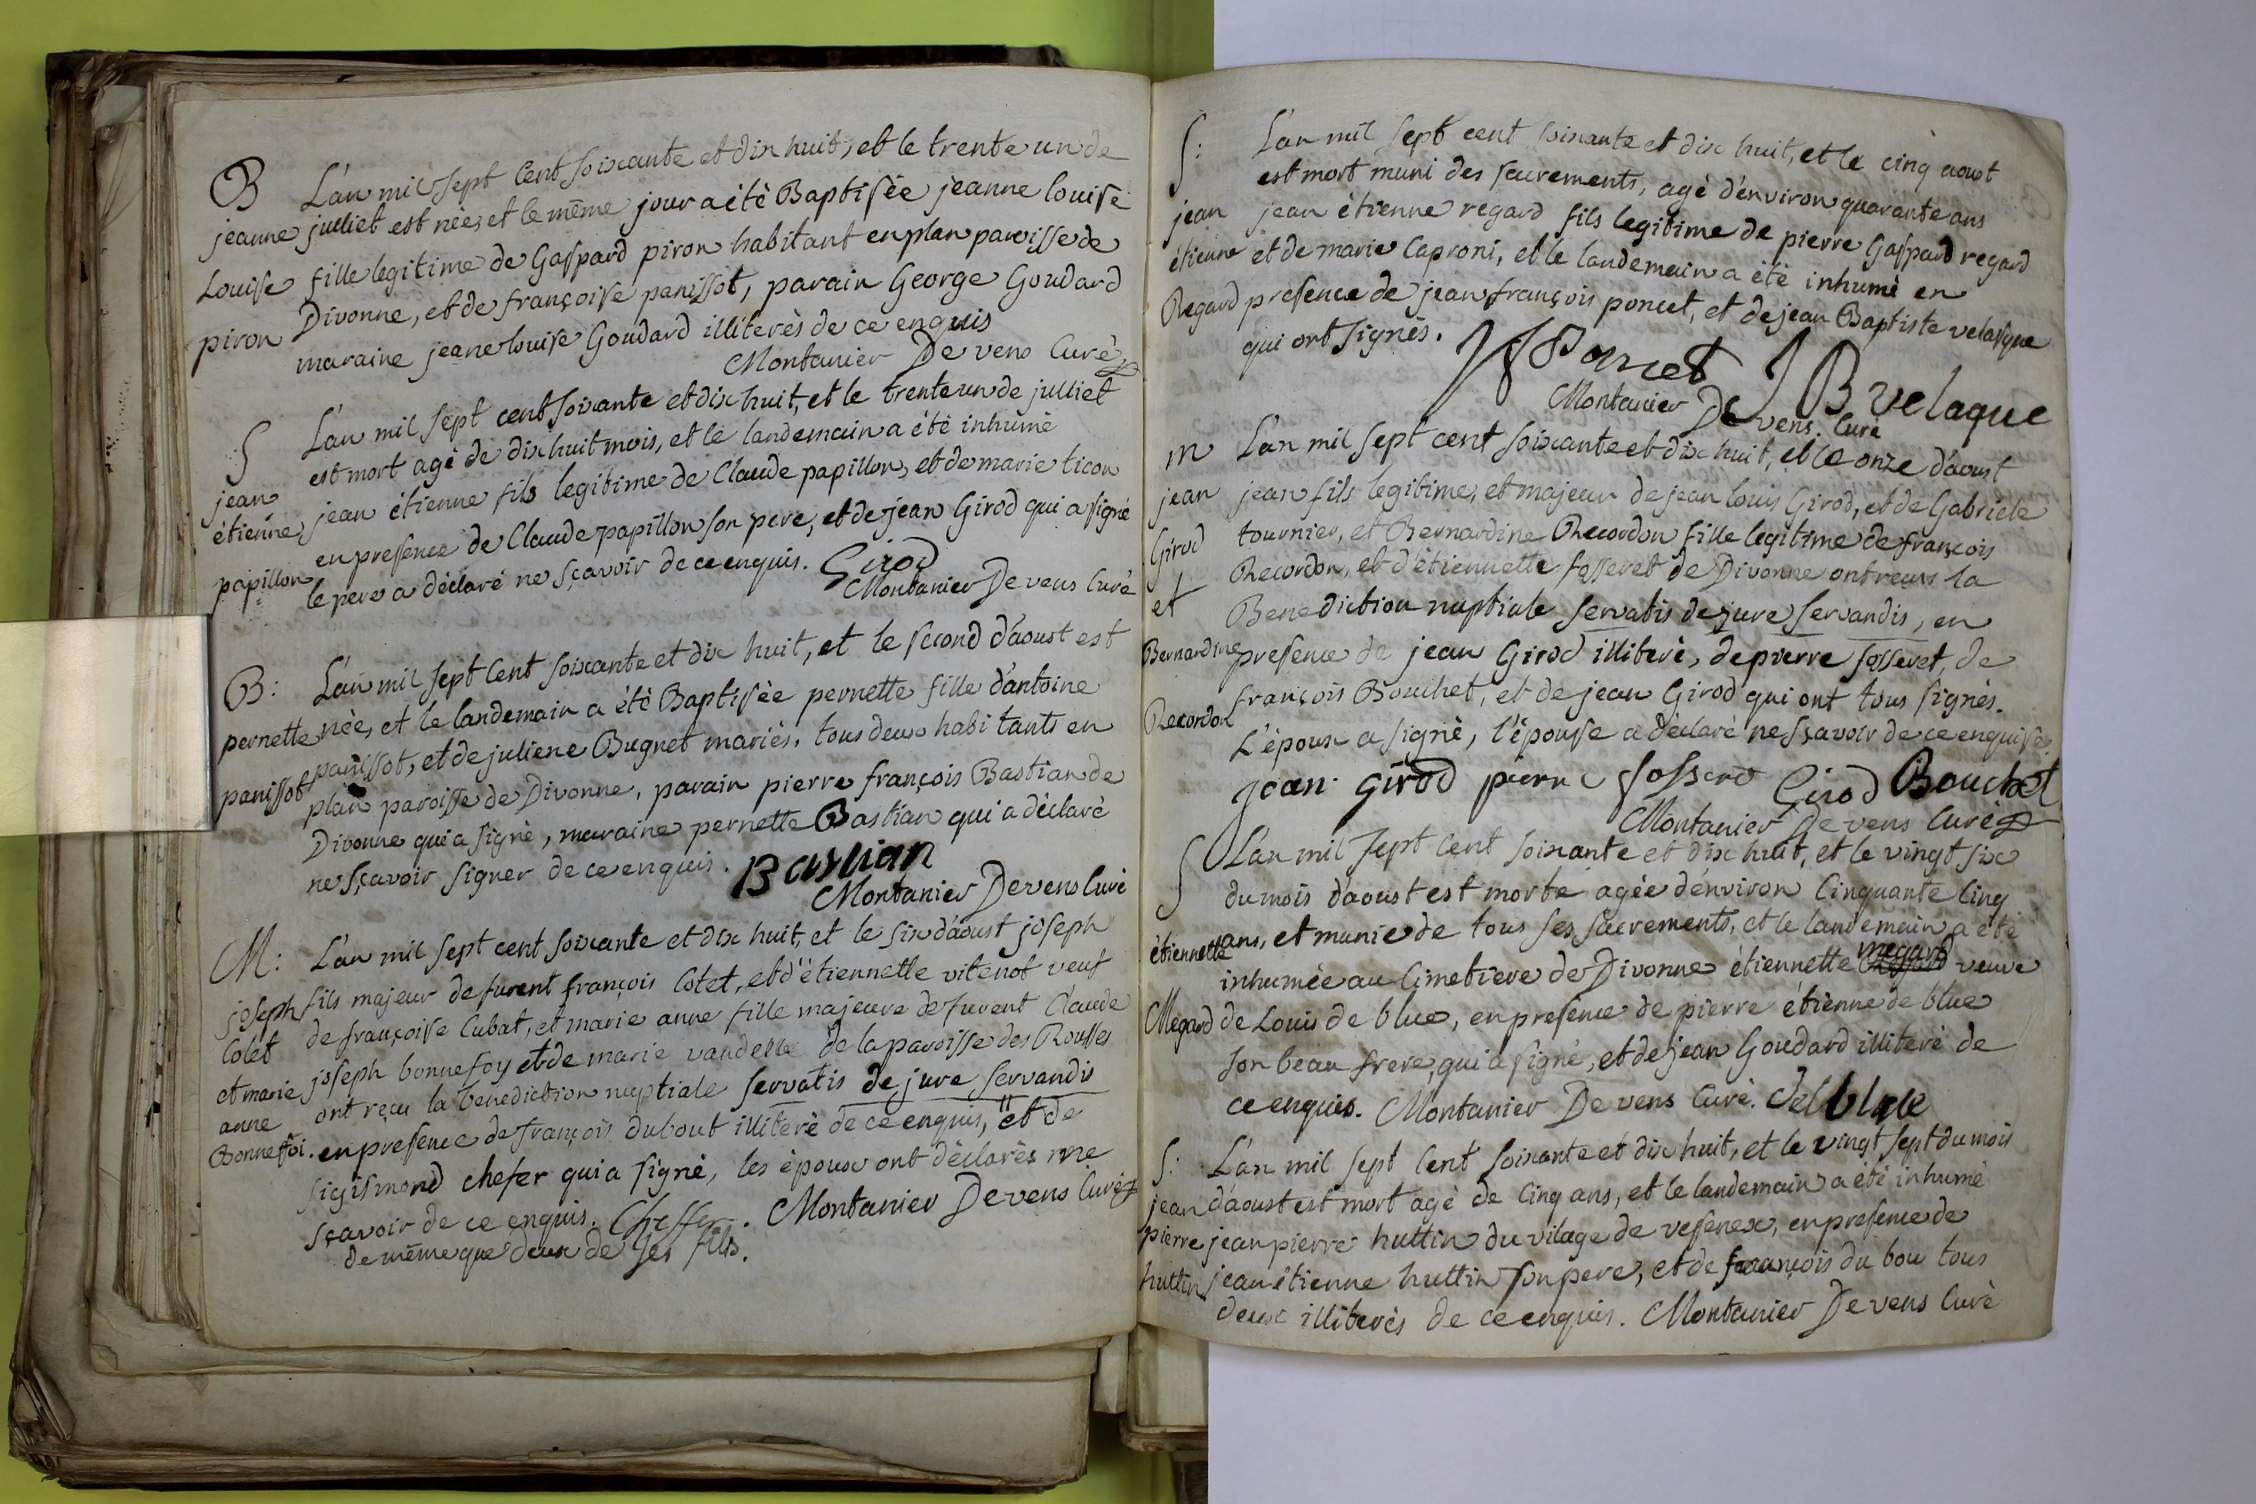 B
jeanne
Louise
piron
L'an mil sept cent soixante et dix huit, et le trente un de
juilliet est nèe, et le même jour a étè Baptisée jeanne louise
fille legitime de Gaspard piron habitant en plan paroisse de
Divonne, et de françoise panissot, parain George Goudard
maraine jeane louise Goudard illiterès de ce enquis
Montanier De vens Curè
S
jean
étienne
papillon
L'an mil sept cent soixante et dix huit, et le trente un de julliet
est mort agé de dix huit mois, et le landemain a étè inhumè
jean étienne fils legitime de Claude papillon, et de marie ticon
en presence de Claude papillon son pere, et de jean Girod qui a signé
le pere a déclaré ne sçavoir de ce enquis. Girod
Montanier De vens Curè
B:
pernette
panissot
L'an mil sept cent soixante et dix huit, et le second d'aoust est
née, et le landemain a étè Baptisèe pernette fille d'antoine
panissot, et de juliene Bugnet mariés, tous deux habitants en
plan paroisse de Divonne, parain pierre françois Bastian de
Divonne qui a signè, maraine pernette Bastian qui a déclarè
ne sçavoir signer de ce enquis. Bastian
Montanier De vens Curè
M:
joseph
Cotet
et marie
anne
Bonnefoi.
L'an mil sept cent soixante et dix huit, et le six d'aoust joseph
fils majeur de furent françois Cotet, et d'étiennette vitenot veuf
de françoise Cubat, et marie anne fille majeure de furent Claude
joseph bonnefoy et de marie vandelle de la paroisse des Rousses
ont reçu la benediction nuptiale servatis de jure servandis
en presence de françois dubout illiterè de ce enquis, et de
sigismond chefer qui a signè, les époux ont déclarès ne
sçavoir de ce enquis. Cheffer. Montanier De vens Curè
de même que deux de ses fils.
S:
jean
étienne
Regard
L'an mil sept cent soixante et dix huit, et le cinq aoust
est mort muni des sacrements, agè d'environ quarante ans
jean étienne regard fils legitime de pierre Gaspard regard
et de marie Caproni, et le landemain a étè inhumè en
presence de jean françois poncet, et de jean Baptiste velasque
qui ont signès.
JF Poncet J B velaque
Montanier De vens Curè
m
jean
Girod
et
Bernardine
Recordon
L'an mil sept cent soixante et dix huit, et le onze d'aoust
jean fils legitime, et majeur de jean louis Girod, et de Gabriele
tournier, et Bernardine Recordon fille legitime de françois
Recordon, et d'étiennette fosseret de Divonne ont reçus la
Benediction nuptiale servatis de jure servandis, en
presence de jean Girod illiterè, de pierre fosseret, de
françois Bouchet, et de jean Girod qui ont tous signès.
L'époux a signè, l'épouse a déclaré ne sçavoir de ce enquise.
jean Girod pierre fosseret Girod Bouchet
Montanier De vens Curè
S
étiennette
Megard
L'an mil sept cent soixante et dix huit, et le vingt six
du mois d'aoust est morte agée d'environ Cinquante Cinq
ans, et munie de tous ses sacrements, et le landemain a été
inhumèe au Cimetiere de Divonne étiennette megard veuve
de Louis de blue, en presence de pierre étienne de blue
son beau frere, qui a signé, et de jean Goudard illiterè de
ce enquis. Montanier De vens Curè.
S:
jean
pierre
huttin
L'an mil sept Cent soixante et dix huit, et le vingt sept du mois
d'aoust est mort agè de Cinq ans, et le landemain a étè inhumè
jean pierre huttin du vilage de vesenex, en presence de
jean étienne huttin son pere, et de françois du bou tous
deux illiterès de ce enquis. Montanier De vens Curè